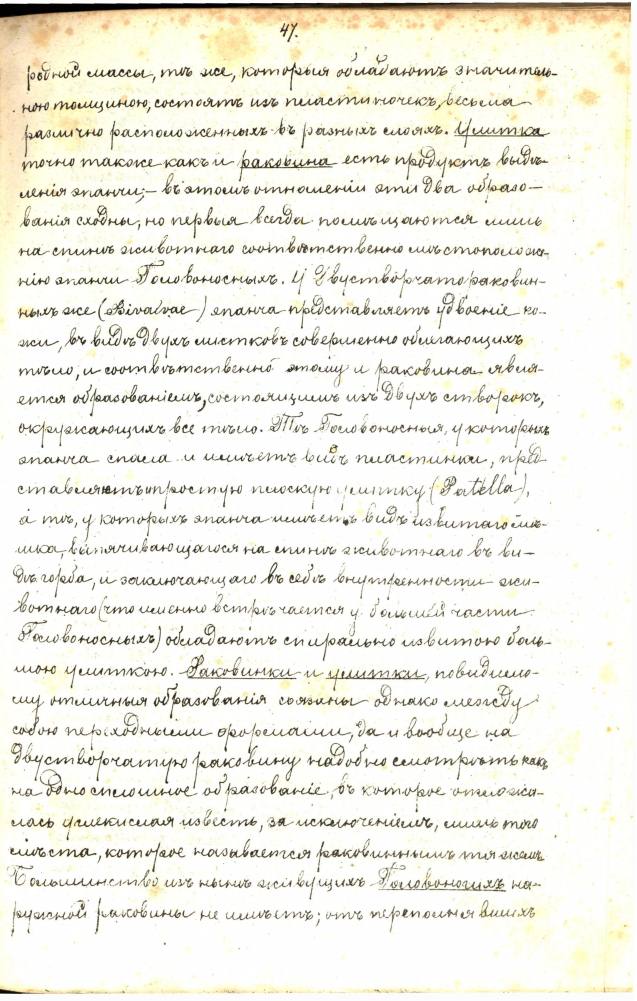 47.
родной массы, тѣ же, которыя обладаютъ значитель-
ною толщиною, состоятъ изъ пластиночекъ, весьма
различно расположенныхъ въ разныхъ слояхъ. Улитка
точно также какъ и раковина есть продуктъ выдѣ-
ленія эпанчи; – въ этомъ отношеніи эти два образо-
ванія сходны, но первыя всегда помѣщаются лишь
на спинѣ животнаго соотвѣтственно мѣстополож-
нію эпанчи Головоносныхъ. У Двустворчатораковин-
ныхъ же (Bivalvae) эпанча представляетъ удвоеніе ко-
жи, въ видѣ двухъ листковъ совершенно облегающихъ
тѣло, и соотвѣтственно этому и раковина явля-
ется образованіемъ, состоящимъ изъ двухъ створокъ,
окружающихъ все тѣло. Тѣ Головоносныя, у которыхъ
эпанча спала и имѣетъ видъ пластинки, пред
ставляютъ простую плоскую улитку (Patella),
а тѣ, у которыхъ эпанча имѣетъ видъ извитаго мѣ-
шка, выпячивающагося на спинѣ животнаго въ ви-
дѣ горба, и заключающаго въ себѣ внутренности жи-
вотнаго (что именно встрѣчается у большей части
Головоносныхъ) обладаютъ спирально извитою боль-
шою улиткою. Раковинки и улитки, повидимо-
му отличныя образованія связаны однако между
собою переходными формами, да и вообще на
двустворчатую раковину надобно смотрѣть какъ
на одно сплошное образованіе, въ которое отложи-
лась углекислая известь, за исключеніемъ, лишь того
мѣста, которое называется раковиннымъ тяжемъ
Большинство изъ нынѣ живущихъ Головоногихъ на-
ружной раковины не имѣетъ; отъ переполнявшихъ